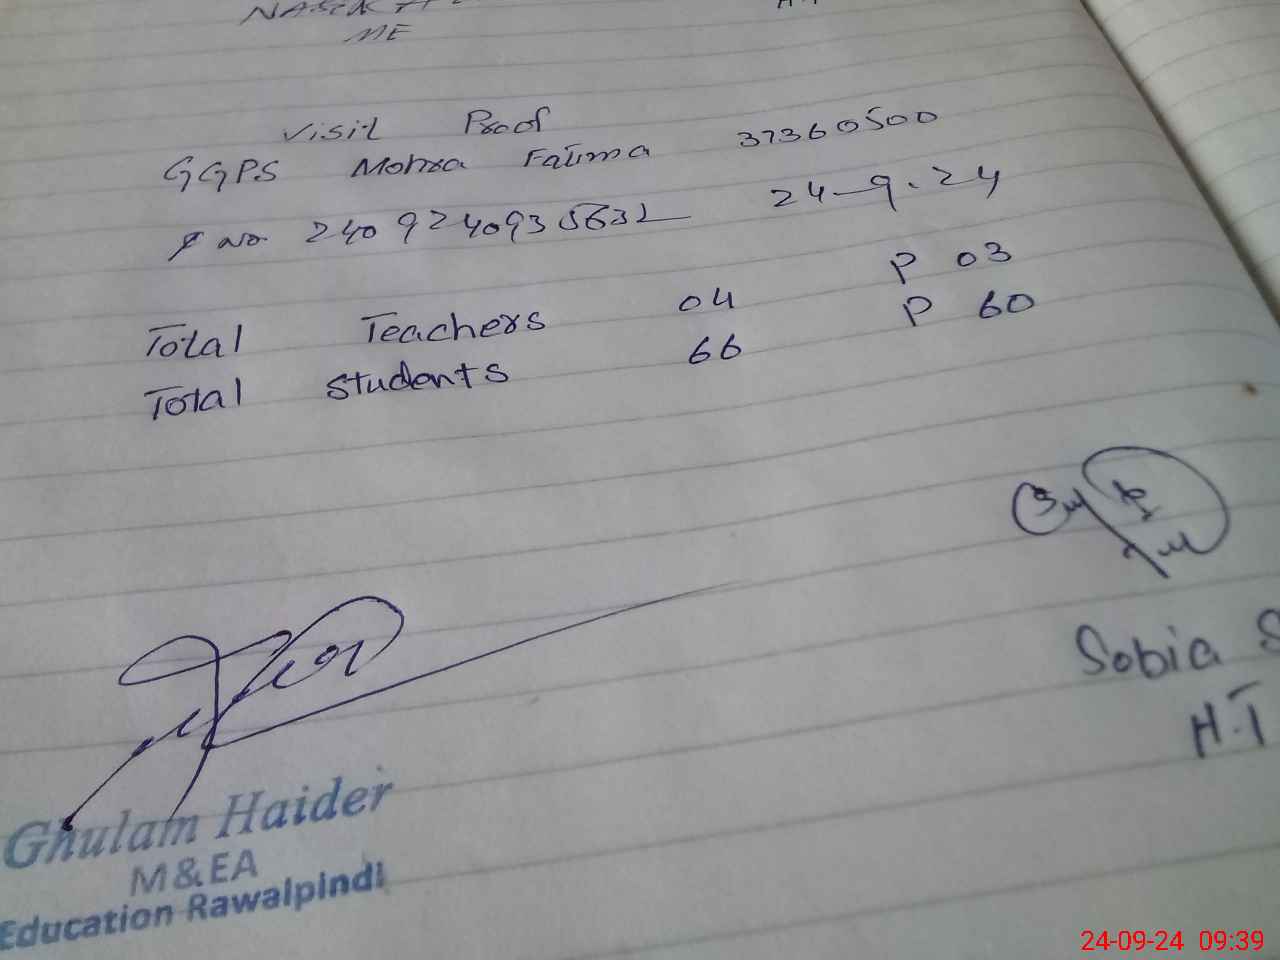 ME
Visit Proof
GGPS Mohra Fatima 37360500
No 240924093563 24-9-24
Total Teachers 04 P 03
Total Students 66 P 60
Sobia S
H.T
Ghulam Haider
M&EA
Education Rawalpindi
24-09-24 09:39